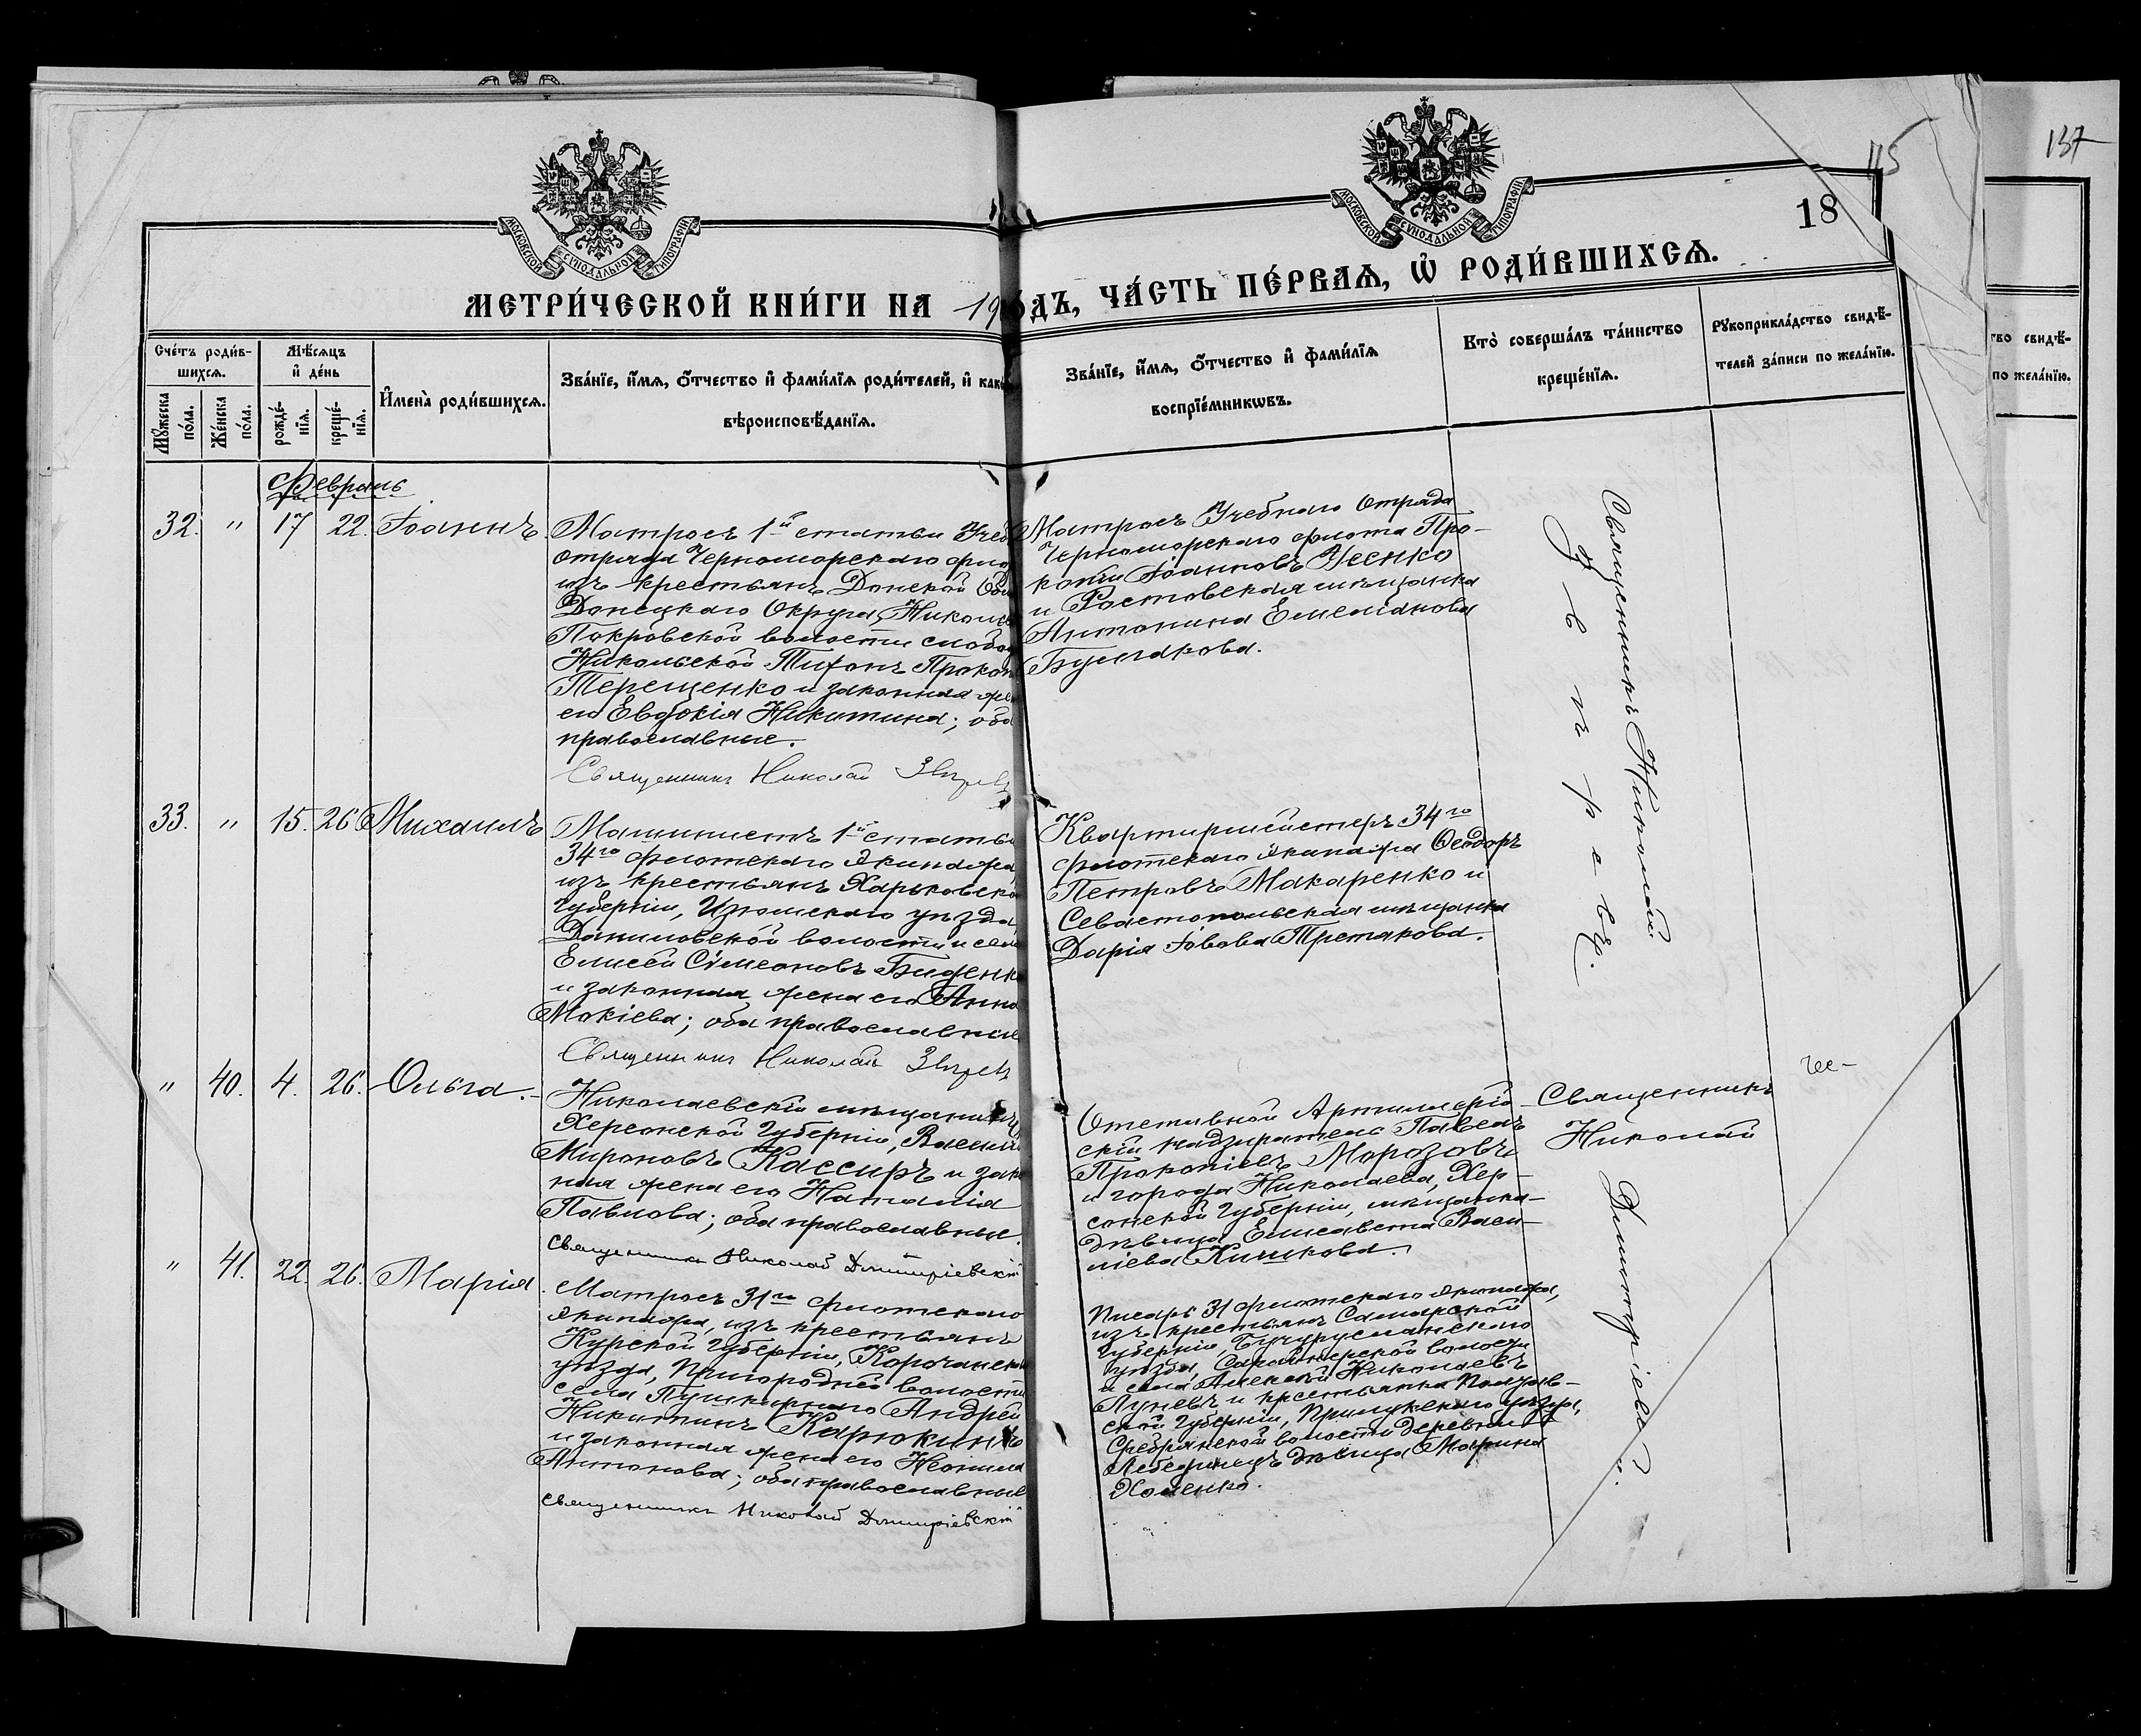 115
137
18
МОСКОВСКОЙ СѴНОДАЛЬНОЙ ТИПОГРАФІИ
МОСКОВСКОЙ СѴНОДАЛЬНОЙ ТИПОГРАФІИ
МЕТРИ́ЧЕСКОЙ КНИ́ГИ НА 19
ОДЪ, ЧА́СТЬ ПЕ́РВАѦ, Ѡ РОДИ́ВШИХСѦ.
Сче́тъ роди́в-
шихсѧ.
Мꙋжеска по́ла.
Же́нска по́ла.
Мѣ́сѧцъ и҆ де́нь
рожде́-
нїѧ.
креще́-
нїѧ.
И҆мена̀ роди́вшихсѧ.
Зва́нїе, и҆́мѧ, ѻ҆́тчество и҆ фами́лїѧ роди́телей, и҆ как
вѣроисповѣ́данїѧ.
Зва́нїе, и҆́мѧ, ѻ҆́тчество и҆ фами́лїѧ
воспрїе́мникѡвъ.
Кто̀ соверша́лъ та́инство
креще́нїѧ.
Рꙋкоприкла́дство свидѣ́-
телей за́писи по жела́нїю.
тво свидѣ́-
по жела́нїю.
Февраль
32. " 17 22. Іоаннъ
Матросъ 1й статьи Учеб
отряда Черноморскаго фло
изъ крестьянъ Донской Об
Донецкаго Округа, Николае
Покровской волости слобо
Никольской Тихонъ Прокоп
Терещенко и законная же
его Евдокія Никитина; оба
православные.
Священникъ Николай Звѣревъ
Матросъ Учебнаго Отряда
Черноморскаго флота Про-
копій Іоанновъ Усенко
и Ростовская мѣщанка
Антонина Емеліанова
Булгакова.
Священникъ Николай
Звѣревъ.
33. " 15. 26. Михаилъ
Машинистъ 1й статьи
34го флотскаго экипажа,
изъ крестьянъ Харьковско
Губерніи, Изюмскаго уѣзда
Даниловской волости и села
Елисей Сімеоновъ Биденко
и законная жена его Анна
Мокіева; оба православные
Священникъ Николай Звѣревъ
Квартирмейстеръ 34го
флотскаго экипажа Ѳеодоръ
Петровъ Макаренко и
Севастопольская мѣщанка
Дарія Іовова Третякова.
" 40. 4. 26. Ольга.
Николаевскій мѣщанинъ
Херсонской Губерніи, Василій
Мироновъ Кассиръ и зако
ная жена его Наталія
Павлова; оба православные.
Священникъ Николай Димитріевскій
Отставной Артиллерій-
скій надзиратель Павелъ
Прокопіевъ Морозовъ
и города Николаева, Хер-
сонской Губерніи, мѣщанка-
дѣвица Елисавета Васи-
ліева Кишкова.
Священникъ
Николай
Димитріевскій.
" 41. 22. 26. Марія.
Матросъ 31го флотскаго
экипажа, изъ крестьянъ
Курской Губерніи, Корочанска
уѣзда, Пригородней волости
села Пушкарнаго Андрей
Никитинъ Карюкинъ
и законная жена его Неонила
Антонова; оба православные
Священникъ Николай Димитріевскій
Писарь 31 флотскаго экипажа,
изъ крестьянъ Самарской
Губерніи, Бугурусланскаго
уѣзда, волости
и села Алексѣй Николаевъ
Луневъ и крестьянка Полтав-
ской Губерніи, Прилукскаго уѣзда,
Сребрянской волости деревни
Лебединецъ дѣвица Марина